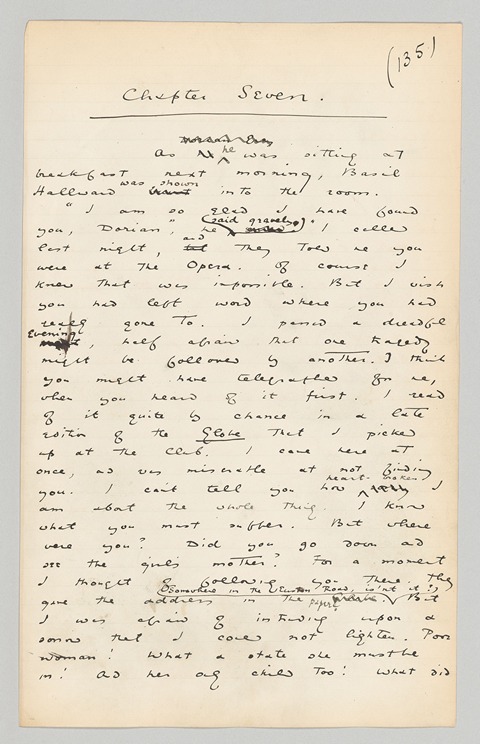 (135)
Chapter Seven.
As he was sitting at
breakfast next morning, Basil
Hallward was shown into the room.
"I am so glad I have found
you, Dorian," he said gravely. "I called
last night, and they told me you
were at the Opera. Of course I
knew that was impossible. But I wish
you had left word where you had
really gone to. I passed a dreadful
Evening, half afraid that one tragedy
might be followed by another. I think
you might have telegraphed for me,
when you heard of it first. I read
of it quite by chance in a late
edition of the Globe that I picked
up at the Club. I came here at
once, and was miserable at not finding
you. I can't tell you how heart-broken I
am about the whole thing. I know
what you must suffer. But where
were you? Did you go down and
see the girl's mother? For a moment
I thought of following you there. They
gave the address in the paper. Somewhere in the Euston Road, isn't it? But
I was afraid of intruding upon a
sorrow that I could not lighten. Poor
woman! What a state she must be
in! And her only child too! What did